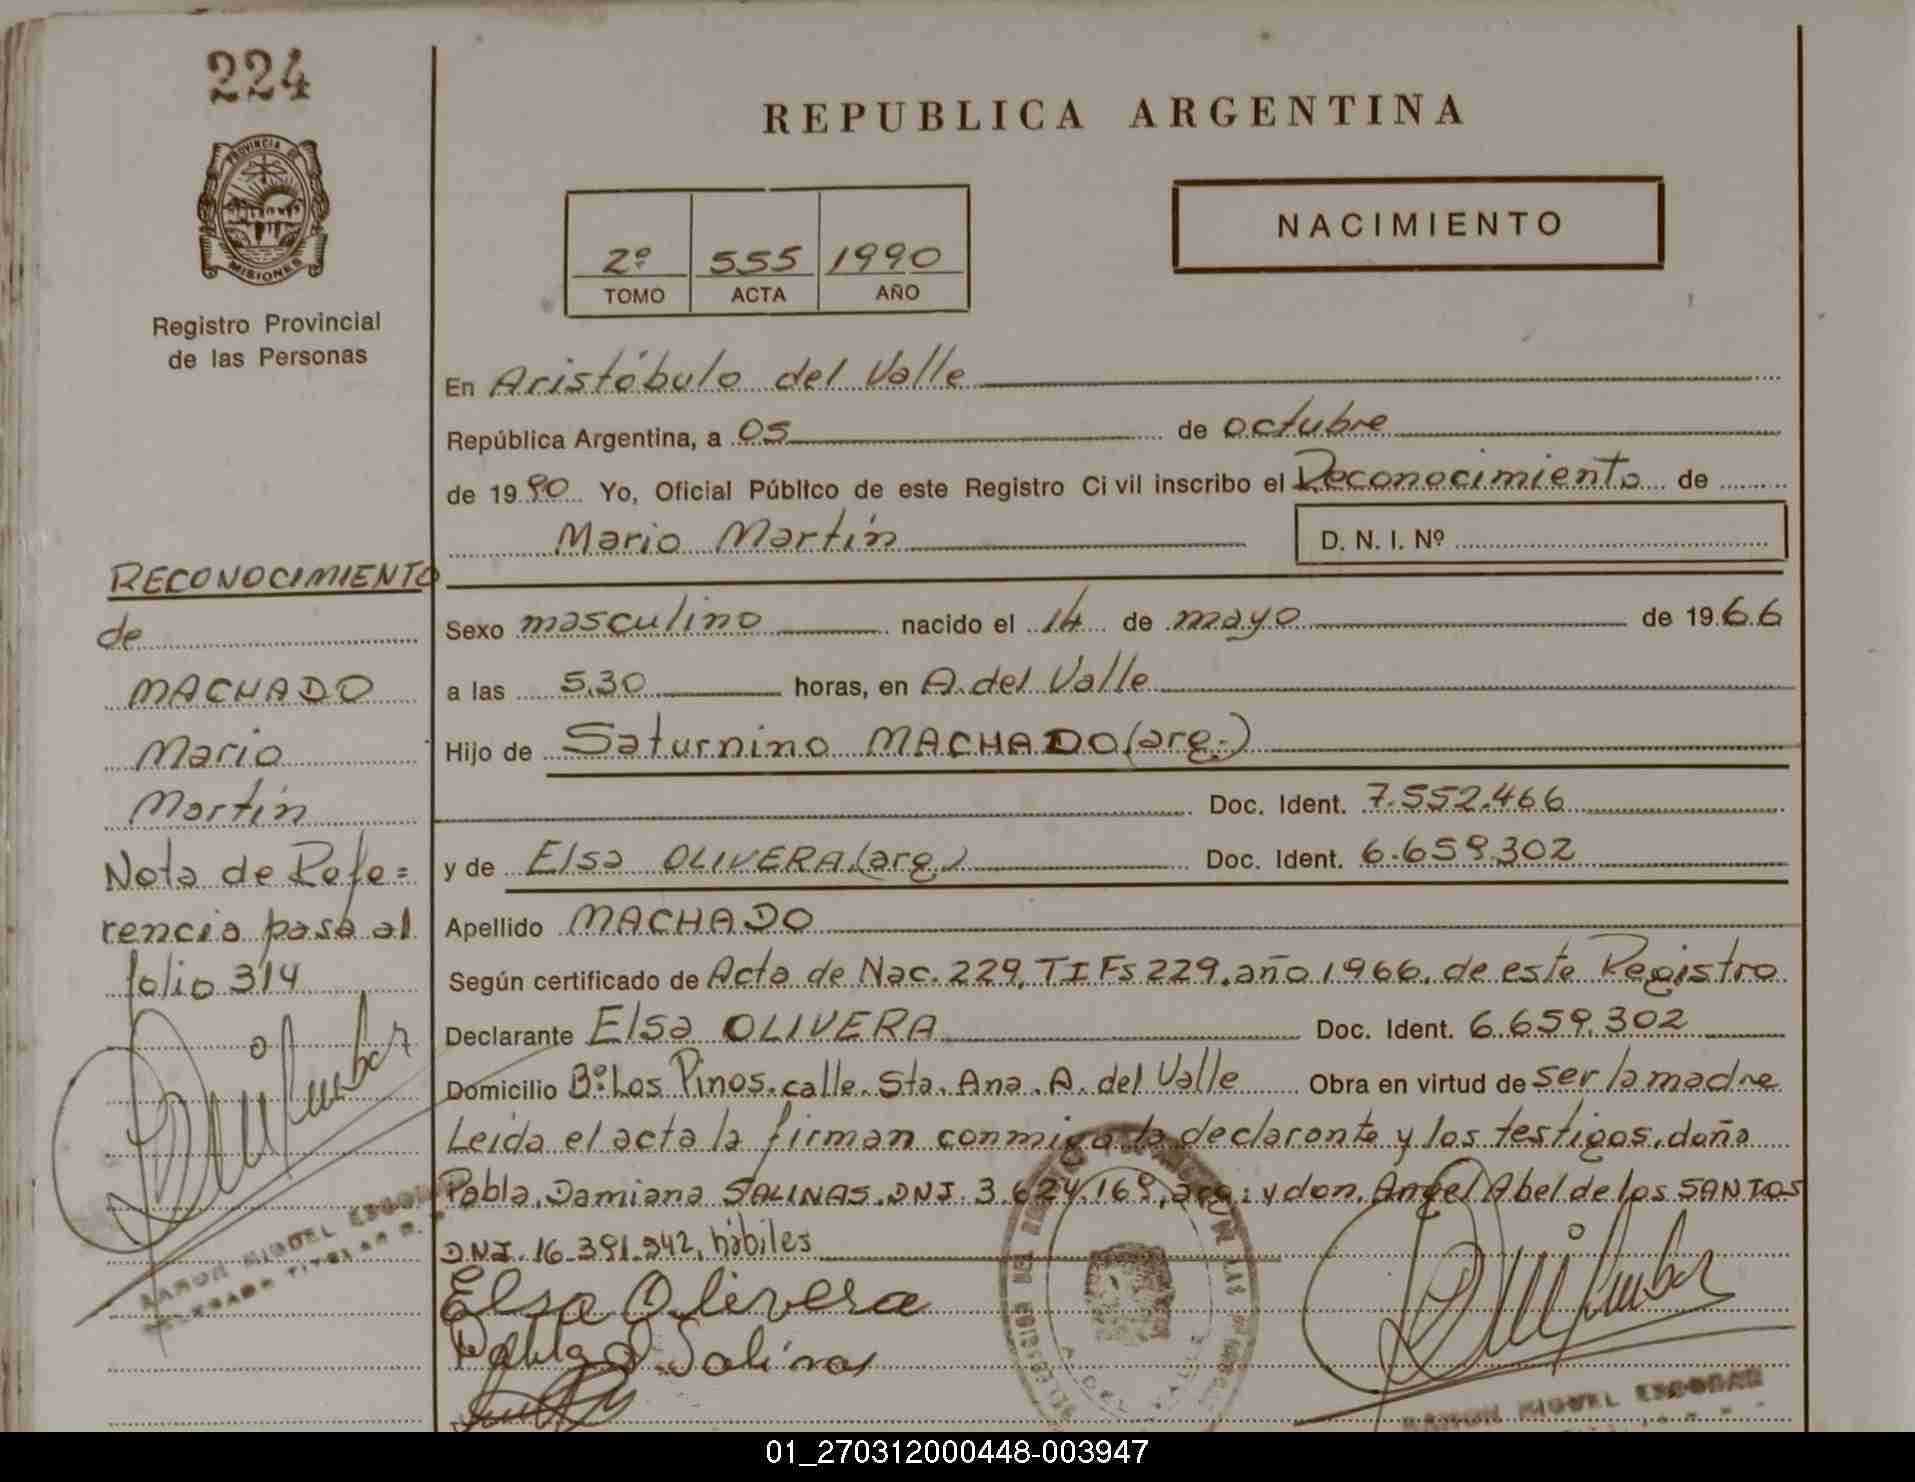 224
PROVINCIA DE
MISIONES
Registro Provincial
de las Personas
REPUBLICA ARGENTINA
2º 555 1990
TOMO ACTA AÑO
NACIMIENTO
En Aristóbulo del Valle
República Argentina, a 05 de octubre
de 1990 Yo, Oficial Público de este Registro Civil inscribo el Reconocimiento de
Mario Martín D. N. I. Nº
RECONOCIMIENTO
de
MACHADO
Mario
Martín
Nota de Refe=
rencia pasa al
folio 314
RAMON MIGUEL ESCOBAR
DELEGADO TITULAR
Sexo masculino nacido el 14 de mayo de 1966
a las 5,30 horas, en A. del Valle
Hijo de Saturnino MACHADO (arg.)
Doc. Ident. 7.552.466
y de Elsa OLIVERA (arg.) Doc. Ident. 6.659.302
Apellido MACHADO
Según certificado de Acta de Nac. 229, TI Fs 229, año 1966, de este Registro
Declarante Elsa OLIVERA Doc. Ident. 6.659.302
Domicilio Bº Los Pinos, calle Sta. Ana. A. del Valle Obra en virtud de ser la madre
Leída el acta la firman conmigo la declarante y los testigos, doña
Pabla Damiana SALINAS, DNI. 3.624.169, arg; y don Angel Abel de los SANTOS
DNI. 16.391.942, hábiles
Elsa Olivera
Pabla D. Salinas
RAMON MIGUEL ESCOBAR
01_270312000448-003947